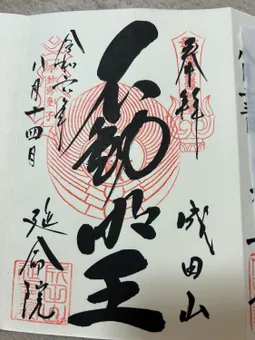 奉拝
成田山
不動明王
令和六年
八月十四日
延命院